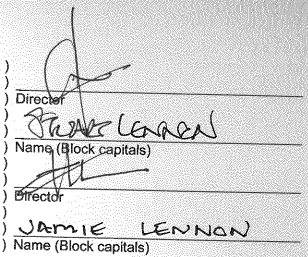 )
) Director
) STUART LENNON
) Name (Block capitals)
)
) Director
)
) JAMIE LENNON
) Name (Block capitals)